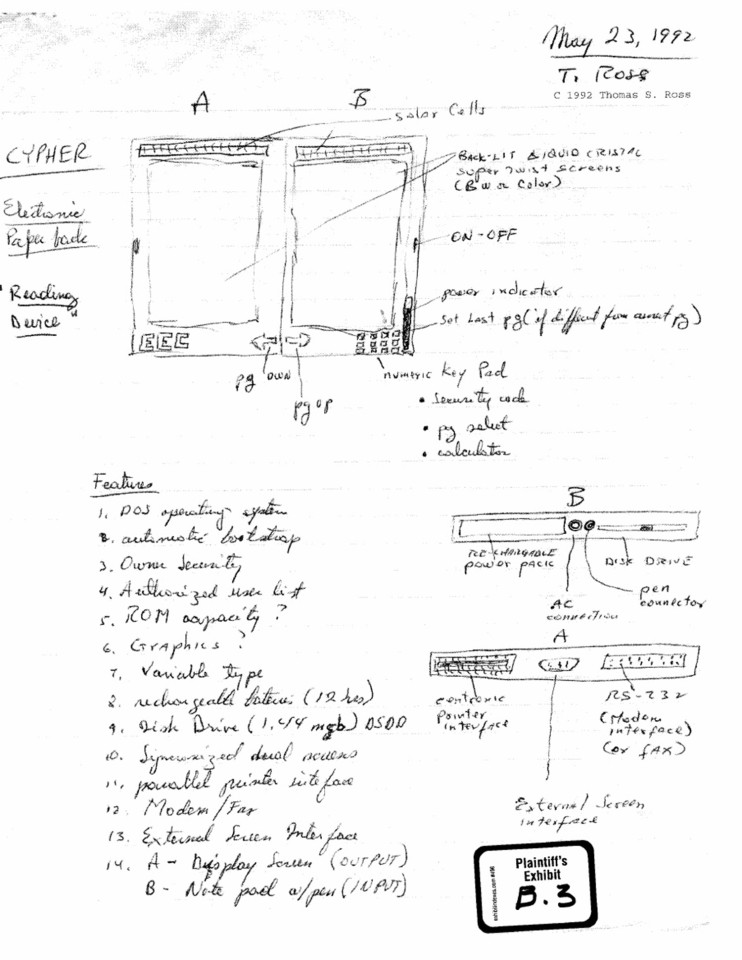 May 23, 1992
T. Ross
C 1992 Thomas S. Ross
A
B
solar cells
CYPHER
BACK-LIT & LIQUID CRISTAL
super twist screens
(BW or Color)
Electronic
Paper back
ON-OFF
"Reading
Device"
power indicator
Set Last pg (if diffirent from current pg)
EEC
pg own
pg up
numeric Key Pad
• Security code
• pg select
• calculator
Features
1. DOS operating system
2. automatic bootstrap
3. Owner Security
4. Authorized user list
5. ROM capacity ?
6. Graphics ?
7. Variable type
8. rechargeable bateries (12 hrs)
9. Disk Drive (1.44 mgb) DSDD
10. Syncronized dual screens
11. parallel printer interface
12. Modem/Fax
13. External Screen Interface
14. A - Display Screen (OUTPUT)
B - Note pad w/pen (INPUT)
B
RE-CHARGABLE
power pack
DISK DRIVE
AC
connection
pen
connector
A
centronic
Pointer
interface
RS-232
(Modem
interface)
(or fAX)
External Screen
interface
Plaintiff's
Exhibit
B.3